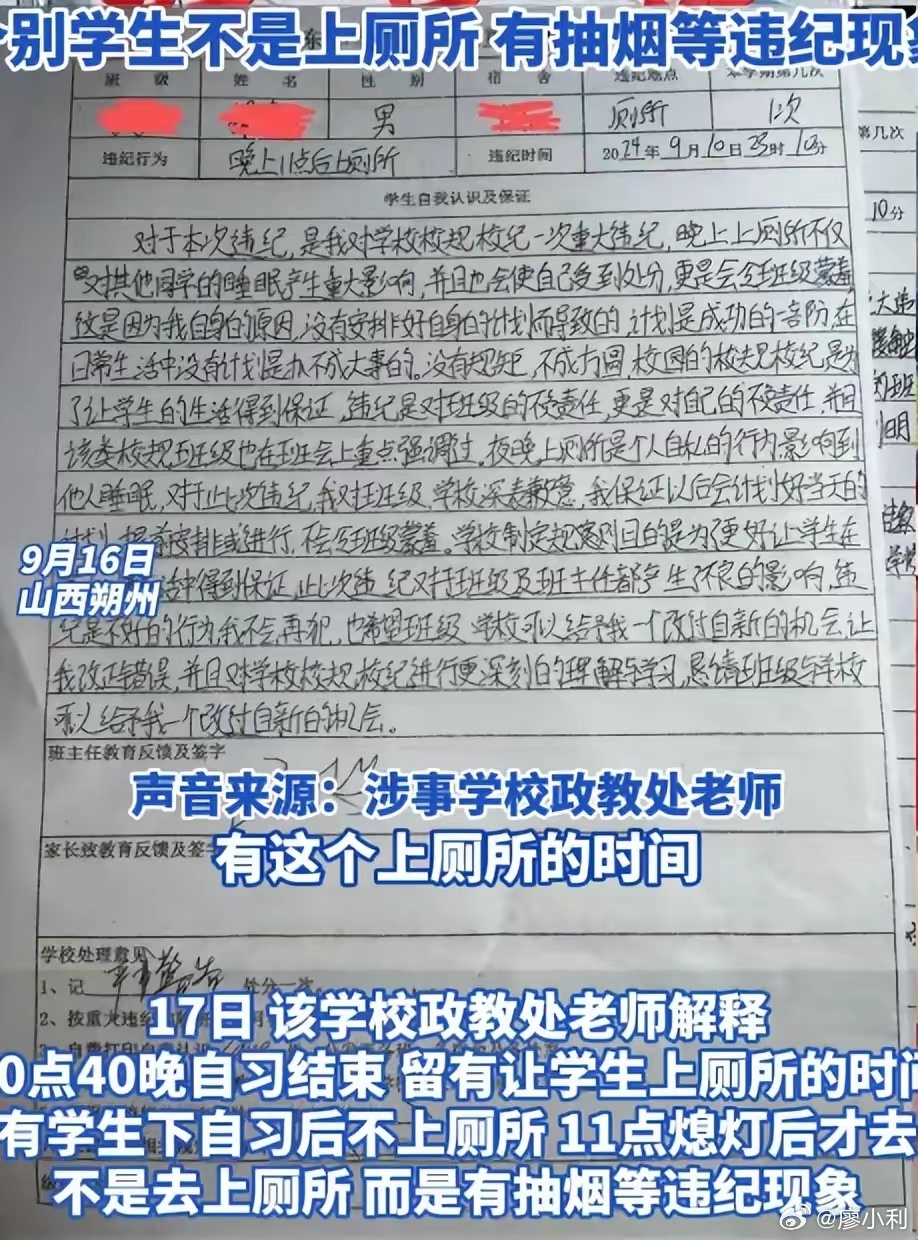 个别学生不是上厕所 有抽烟等违纪现象
班 级 姓 名 性 别 宿 舍 违纪地点 本学期第几次
男 厕所 1次
违纪行为 晚上11点后上厕所 违纪时间 2024年9月10日23时10分
学生自我认识及保证
对于本次违纪,是我对学校校规校纪一次重大违纪,晚上上厕所不仅
对其他同学的睡眠产生重大影响,并且也会使自己受到处分,更是会给班级蒙羞
这是因为我自身的原因,没有安排好自身的计划而导致的,计划是成功的一音阶,在
日常生活中没有计划是办不成大事的。没有规矩,不成方圆,校园的校规校纪是为
了让学生的生活得到保证,违纪是对班级的不负责任,更是对自己的不负责任,并且
该类校规班级也在班会上重点强调过,夜晚上厕所是个人自私的行为,影响到
他人睡眠,对于此次违纪,我对班级、学校深表歉意,我保证以后会计划好当天的
计划,提前安排或进行,不会给班级蒙羞。学校制定规章则目的是为了更好让学生在
得到保证,此次违纪对持班级及班主任都产生了不良的影响,违
纪是不好的行为,我不会再犯,也希望班级、学校可以给予我一个改过自新的机会,让
我改正错误,并且对学校校规、校纪进行更深刻的理解与学习,恳请班级与学校
可以给予我一个改过自新的机会。
9月16日
山西朔州
班主任教育反馈及签字
声音来源:涉事学校政教处老师
有这个上厕所的时间
家长致教育反馈及签字
学校处理意见
1、记 严重警告 处分一次。
2、按重大违纪
17日 该学校政教处老师解释
0点40晚自习结束 留有让学生上厕所的时间
有学生下自习后不上厕所 11点熄灯后才去
不是去上厕所 而是有抽烟等违纪现象
第几次
10分
@廖小利